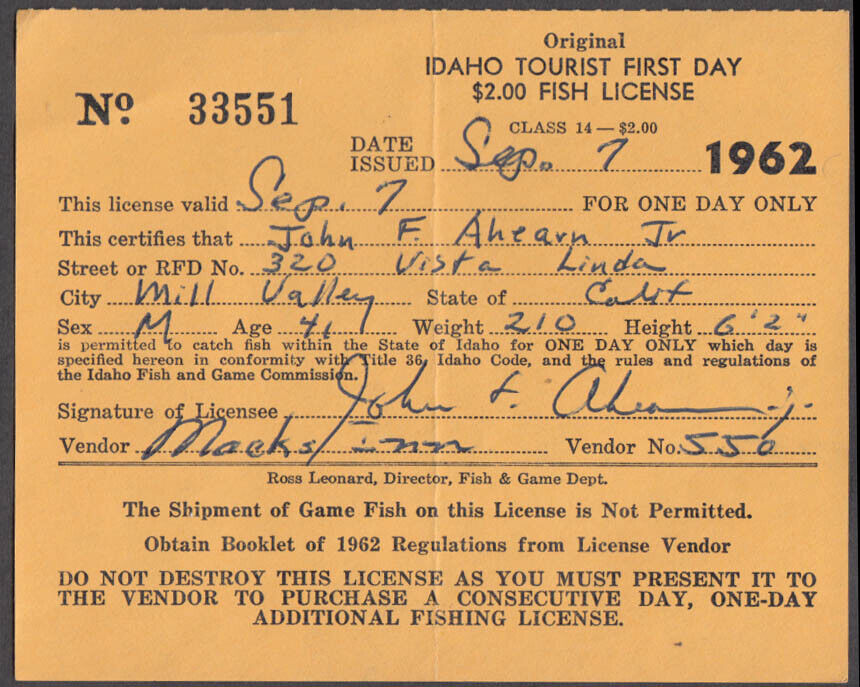 Original
IDAHO TOURIST FIRST DAY
$2.00 FISH LICENSE
Nº 33551
CLASS 14 — $2.00
DATE ISSUED Sep. 7 1962
This license valid Sep. 7 FOR ONE DAY ONLY
This certifies that John F. Ahearn Jr
Street or RFD No. 320 Vista Linda
City Mill Valley State of Calif
Sex M Age 41 Weight 210 Height 6'2"
is permitted to catch fish within the State of Idaho for ONE DAY ONLY which day is
specified hereon in conformity with Title 36, Idaho Code, and the rules and regulations of
the Idaho Fish and Game Commission.
Signature of Licensee John F. Ahearn Jr.
Vendor Macks Inn Vendor No. 550
Ross Leonard, Director, Fish & Game Dept.
The Shipment of Game Fish on this License is Not Permitted.
Obtain Booklet of 1962 Regulations from License Vendor
DO NOT DESTROY THIS LICENSE AS YOU MUST PRESENT IT TO
THE VENDOR TO PURCHASE A CONSECUTIVE DAY, ONE-DAY
ADDITIONAL FISHING LICENSE.